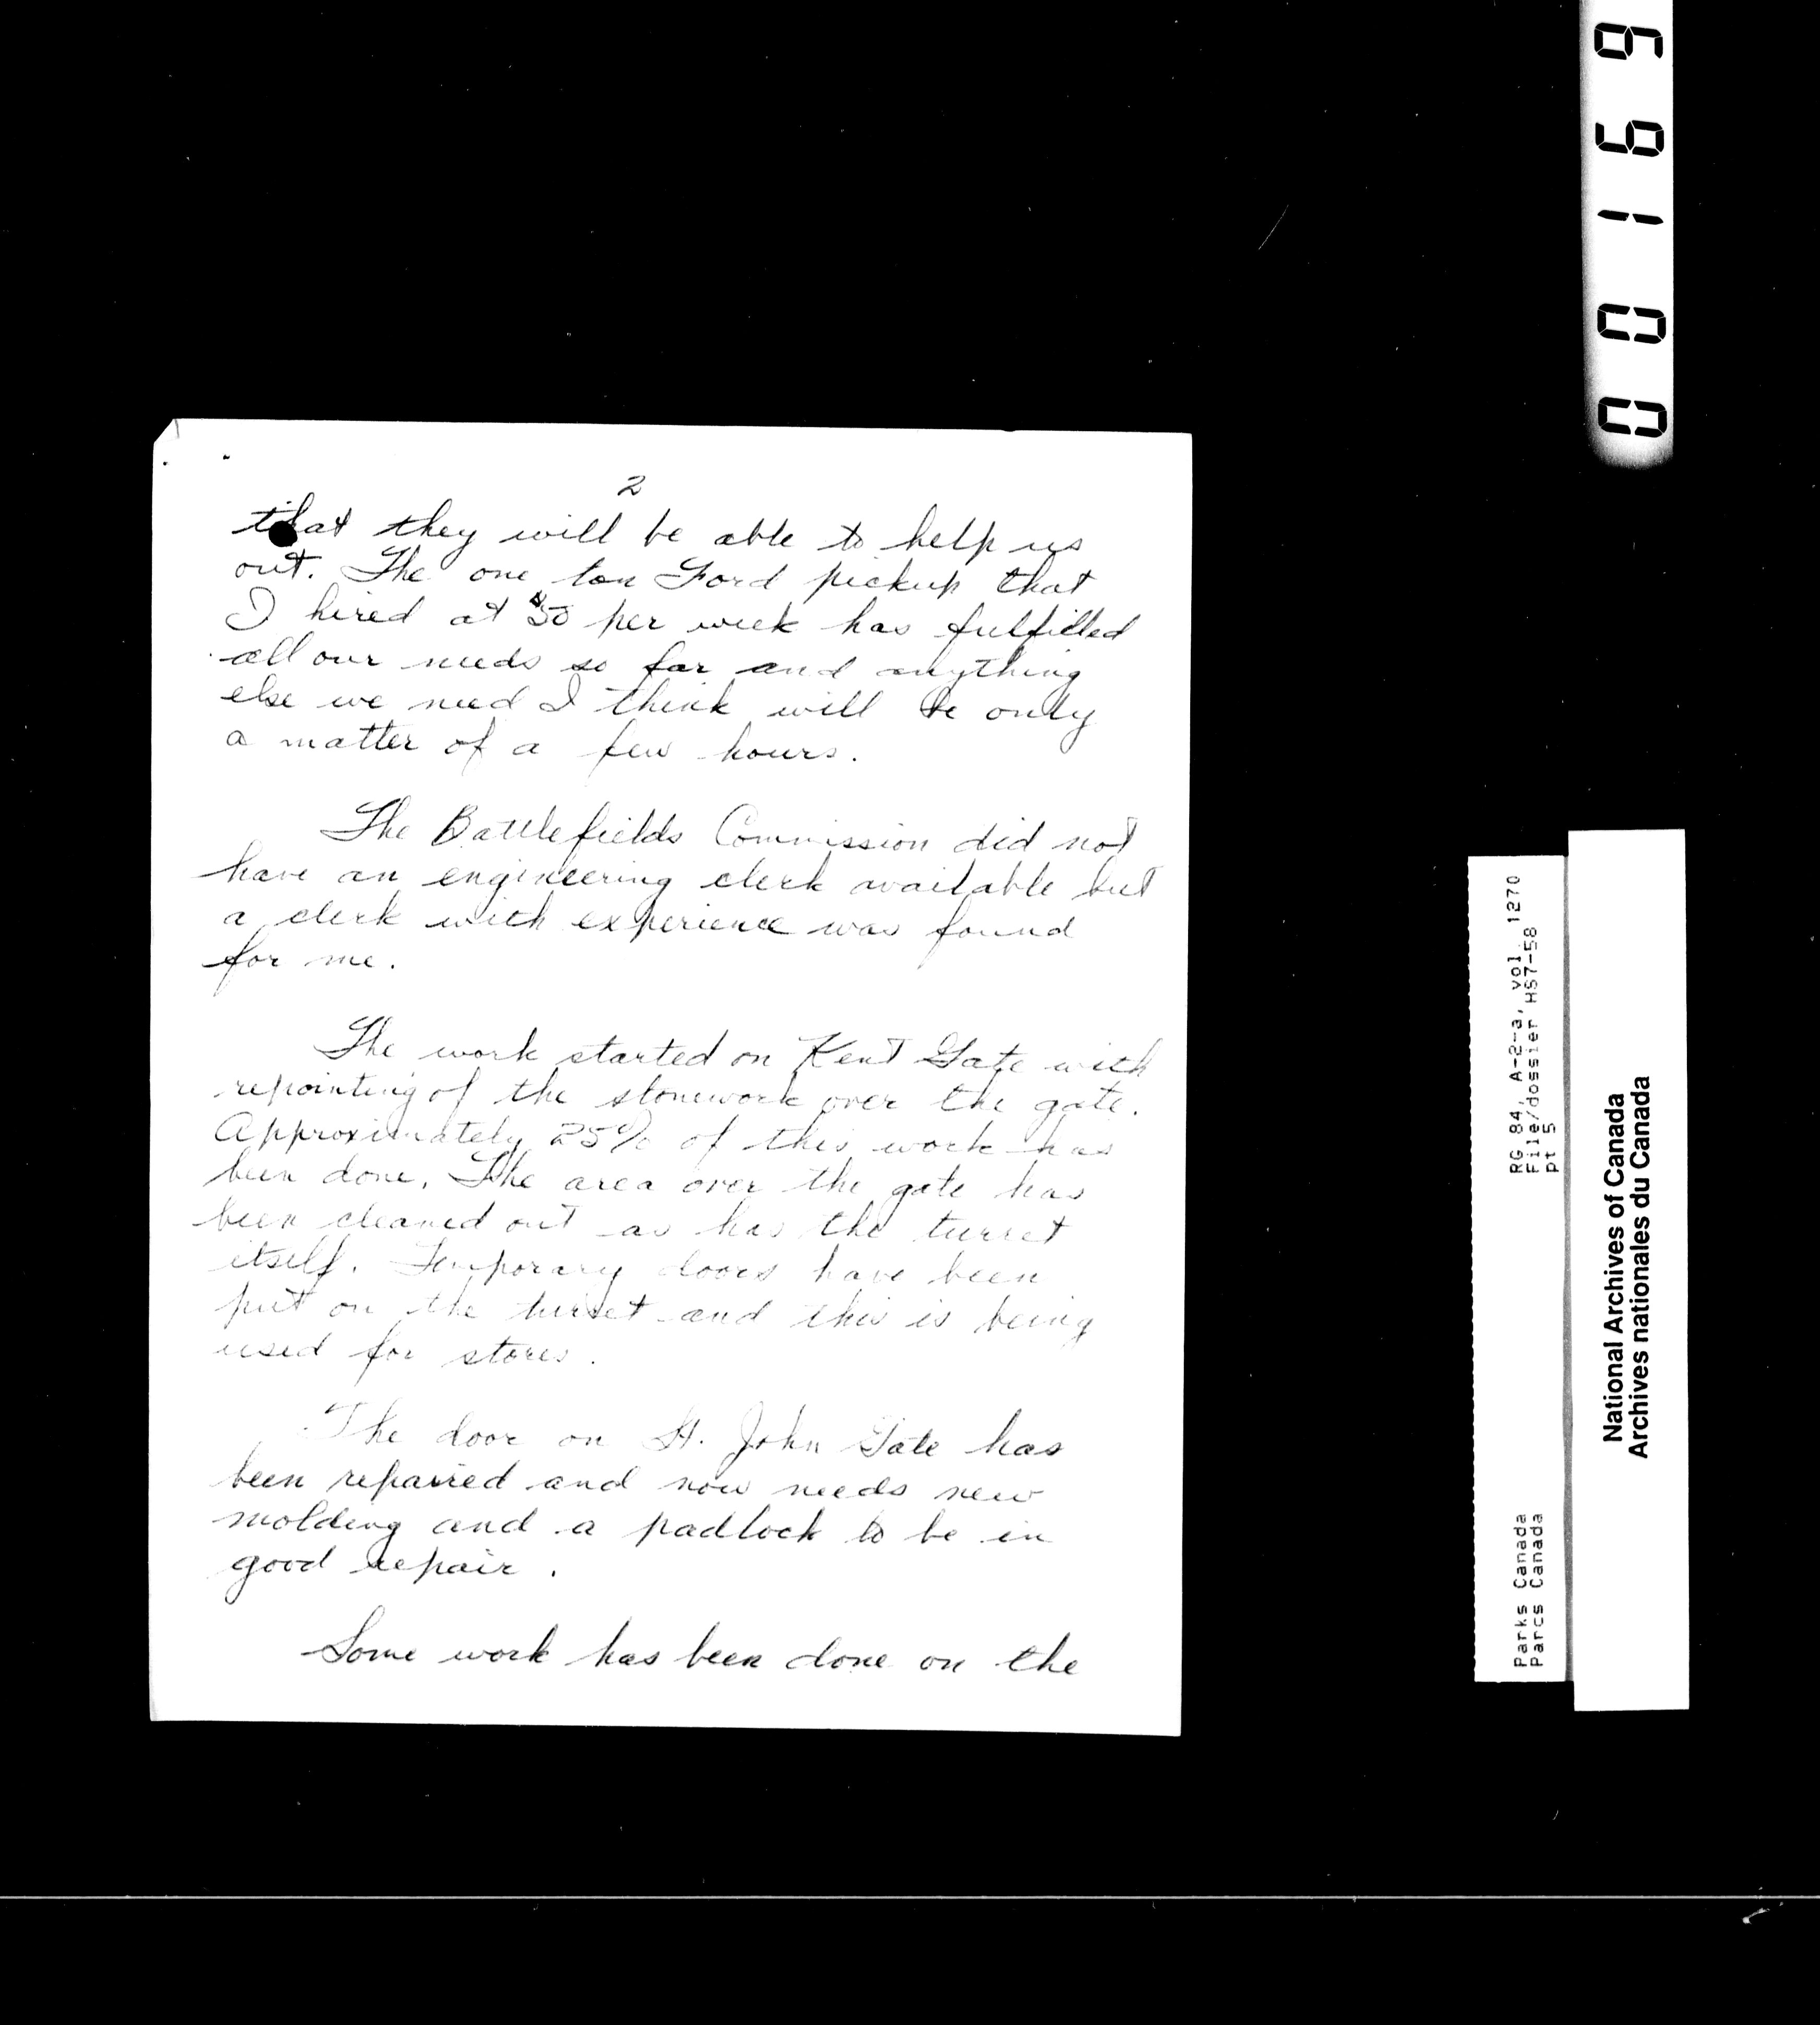 2
that they will be able to help us
out. The one ton Ford pickup that
I hired at $50 per week has fulfilled
all our needs so far and anything
else we need I think will be only
a matter of a few hours.
The Battlefields Commission did not
have an engineering clerk available but
a clerk with experience was found
for me.
The work started on Kent Gate with
repointing of the stonework over the gate.
Approximately 25% of this work has
been done. The area over the gate has
been cleaned out as has the turret
itself. Temporary doors have been
put on the turret and this is being
used for stores.
The door on St. John Gate has
been repaired and now needs new
molding and a padlock to be in
good repair.
Some work has been done on the
00169
RG 84, A-2-a, vol. 1270
File/dossier HS7-58
pt 5
Parks Canada
Parcs Canada
National Archives of Canada
Archives nationales du Canada